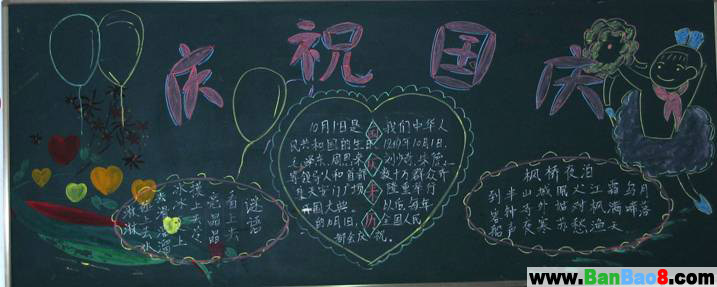 庆祝国庆
10月1日是我们中华人
民共和国的生日。1949年10月1日,
毛泽东、周恩来、刘少奇、朱
等领导人和首都数十万群众齐
天安门广场隆重举行
开国大典。以后每年
的10月1日,全国人民
都会庆祝。
国庆来历
谜语
看上去
亮晶晶
枫桥夜泊
月落
乌啼
霜满天
江枫渔
火对愁
眠姑苏
城外寒
山寺夜
半钟声
到客船
www.BanBao8.com